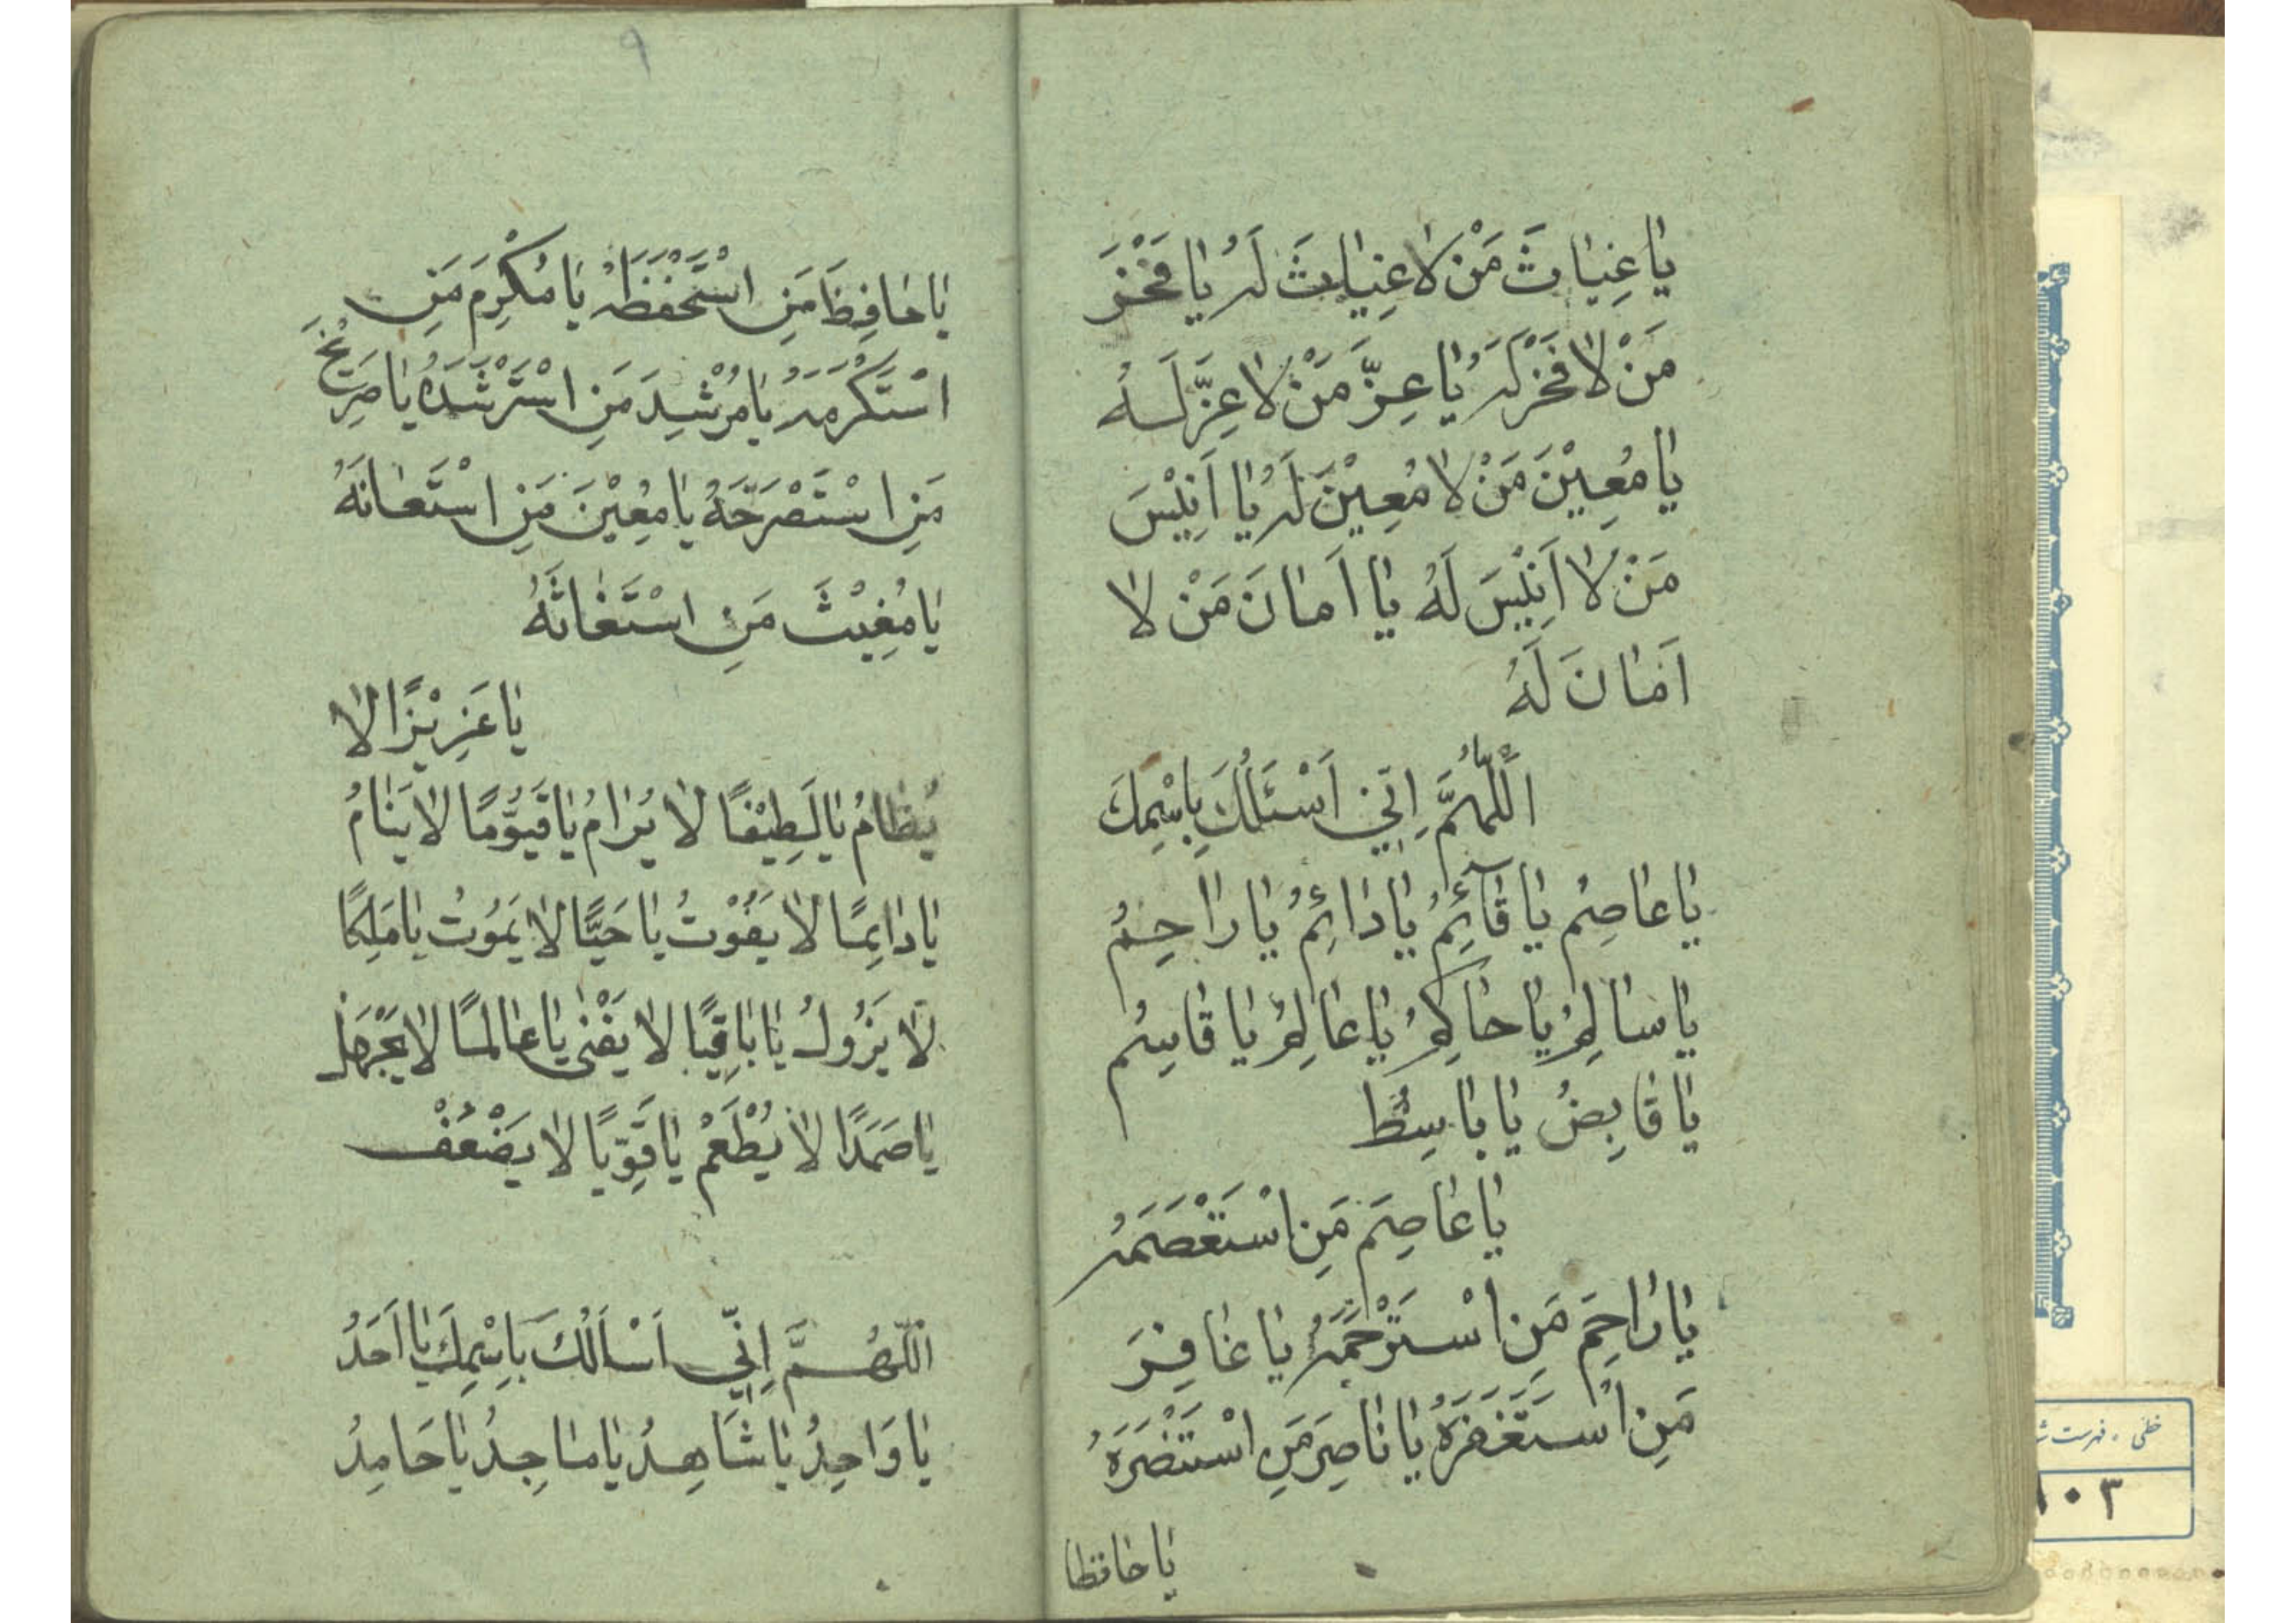 يا غِيٰاثَ مَنْ لا غِيٰاثَ لَهُ يٰا فَخْرَ
مَنْ لا فَخْرَ لَهُ يٰا عِزَّ مَنْ لا عِزَّ لَهُ
يٰا مُعِيْنَ مَنْ لا مُعِيْنَ لَهُ يٰا اَنِيْسَ
مَنْ لا اَنِيْسَ لَهُ يٰا اَمٰانَ مَنْ لا
اَمٰانَ لَهُ
اَللّٰهُمَّ اِنّي اَسْئَلُكَ بِاسْمِكَ
يٰا عٰاصِمُ يٰا قٰآئِمُ يٰا دٰائِمُ يٰا رٰاحِمُ
يٰا سٰالِمُ يٰا حٰاكِمُ يٰا عٰالِمُ يٰا قٰاسِمُ
يٰا قٰابِضُ يٰا بٰاسِطُ
يٰا عٰاصِمَ مَنِ اسْتَعْصَمَهُ
يٰا رٰاحِمَ مَنِ اسْتَرْحَمَهُ يٰا غٰافِرَ
مَنِ اسْتَغْفَرَهُ يٰا نٰاصِرَ مَنِ اسْتَنْصَرَهُ
يٰا حٰافظا
۹
يٰا حٰافِظَ مَنِ اسْتَحْفَظَهُ يٰا مُكْرِمَ مَنِ
اسْتَكْرَمَهُ يٰا مُرْشِدَ مَنِ اسْتَرْشَدَهُ يٰا صَرِيْخَ
مَنِ اسْتَصْرَخَهُ يٰا مُعِيْنَ مَنِ اسْتَعٰانَهُ
يٰا مُغِيْثَ مَنِ اسْتَغٰاثَهُ
يٰا عَزِيْزًا لا
يُظٰامُ يٰا لَطِيْفًا لا يُرٰامُ يٰا قَيُّوْمًا لا يَنٰامُ
يٰا دٰائِمًا لا يَفُوْتُ يٰا حَيًّا لا يَمُوْتُ يٰا مَلِكًا
لا يَزُوْلُ يٰا بٰاقِيًا لا يَفْنٰى يٰا عٰالِمًا لا يَجْهَلُ
يٰا صَمَدًا لا يُطْعَمُ يٰا قَوِيًّا لا يَضْعُفْ
اَللّٰهُمَّ اِنّي اَسْاَلُكَ بِاسْمِكَ يٰا اَحَدُ
يٰا وَاحِدُ يٰا شَاهِدُ يٰا مٰاجِدُ يٰا حَامِدُ
خطی ، فهرست
۱۰۳